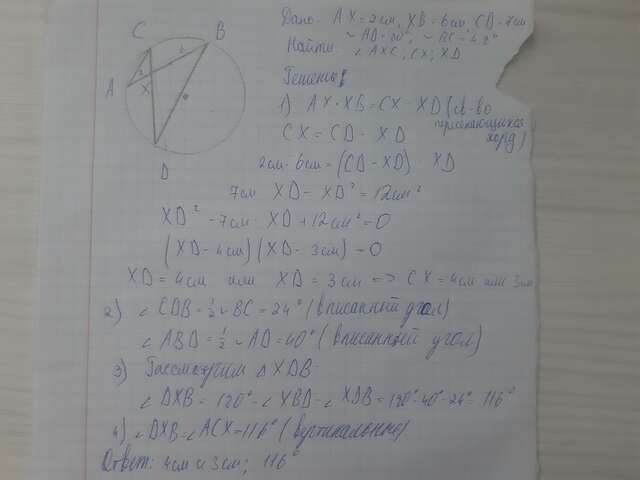 Дано: AX=2см, XB=6см CD=7см
◡AD=80°, ◡BC=48°
Найти ∠AXC, CX, XD
Решение:
1) AX·XB=CX·XD (св-во пересекающихся хорд)
CX=CD-XD
2см·6см=(CD-XD)·XD
7см·XD-XD²=12см²
XD²-7см·XD+12см²=0
(XD-4см)(XD-3см)=0
XD=4см или XD=3см => CX=4см или 3см
2) ∠CDB=½◡BC=24° (вписанный угол)
∠ABD=½◡AD=40° (вписанный угол)
3) Рассмотрим △XDB
∠DXB=180°-∠XBD-∠XDB=180°-40°-24°=116°
4) ∠DXB=∠ACX=116° (вертикальные)
Ответ: 4см и 3см; 116°
C
B
2
6
A
X
D